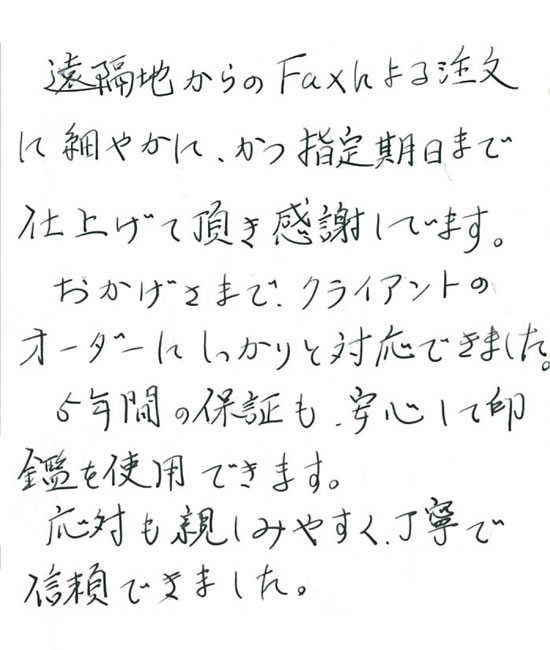 遠隔地からのFaxによる注文
に細やかに、かつ指定期日まで
仕上げて頂き感謝しています。
おかげさまで、クライアントの
オーダーにしっかりと対応できました。
5年間の保証も、安心して印
鑑を使用できます。
応対も親しみやすく、丁寧で
信頼できました。